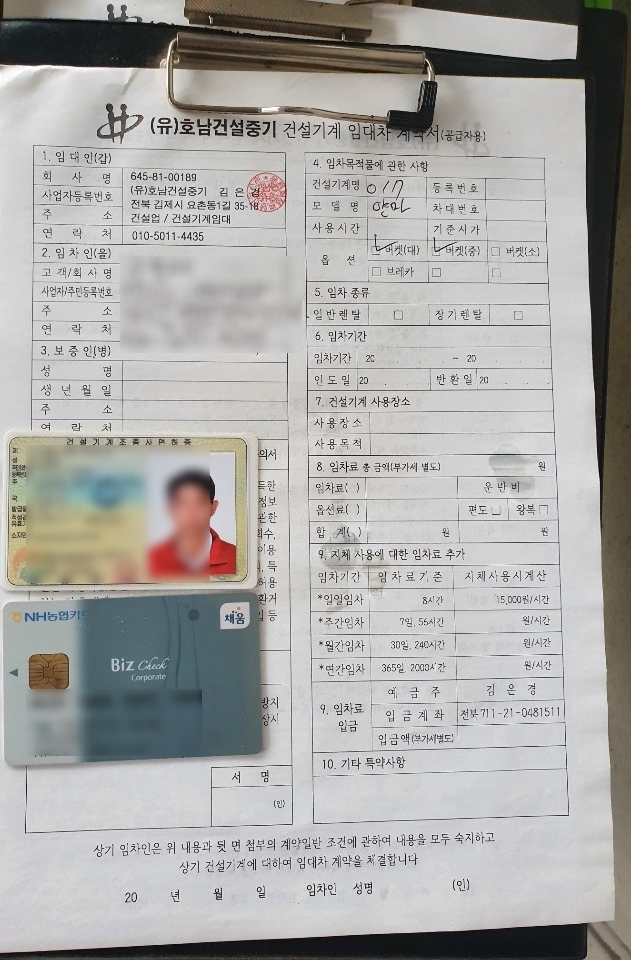 (유)호남건설중기 건설기계 임대차 계약서(공급자용)
1. 임 대 인(갑)
회 사 명
645-81-00189
사업자등록번호
(유)호남건설중기 김 은 경
주 소
전북 김제시 요촌동1길 35-18
건설업 / 건설기계임대
연 락 처
010-5011-4435
2. 임 차 인(을)
고 객/회 사 명
사업자/주민등록번호
주 소
연 락 처
3. 보 증 인(병)
성 명
생 년 월 일
주 소
연 락 처
4. 임차목적물에 관한 사항
건설기계명 017 등 록 번 호
모 델 명 얀마 차 대 번 호
사 용 시 간 기 준 시 가
옵 션 버켓(대) 버켓(중) 버켓(소)
브레카
5. 임차 종류
일 반 렌 탈 장 기 렌 탈
6. 임차기간
임차기간 20 . . . ~ 20 . . .
인 도 일 20 . . . 반 환 일 20 . . .
7. 건설기계 사용장소
사 용 장 소
사 용 목 적
8. 임차료 총 금액(부가세 별도) 원
임차료( ) 운 반 비
옵션료( ) 편도 왕복
합 계( ) 원 원
9. 지체 사용에 대한 임차료 추가
임차기간 임 차 료 기 준 지체사용시계산
*일일임차 8시간 15,000원/시간
*주간임차 7일, 56시간 원/시간
*월간임차 30일, 240시간 원/시간
*연간임차 365일, 2000시간 원/시간
9. 임차료 입금
예 금 주 김 은 경
입 금 계 좌 전북 711-21-0481511
입금액(부가세별도)
10. 기타 특약사항
건설기계조종사면허증
NH농협카드
채움
Biz Check
Corporate
서 명
(인)
상기 임차인은 위 내용과 뒷 면 첨부의 계약일반 조건에 관하여 내용을 모두 숙지하고
상기 건설기계에 대하여 임대차 계약을 체결합니다.
20 년 월 일 임차인 성명 (인)